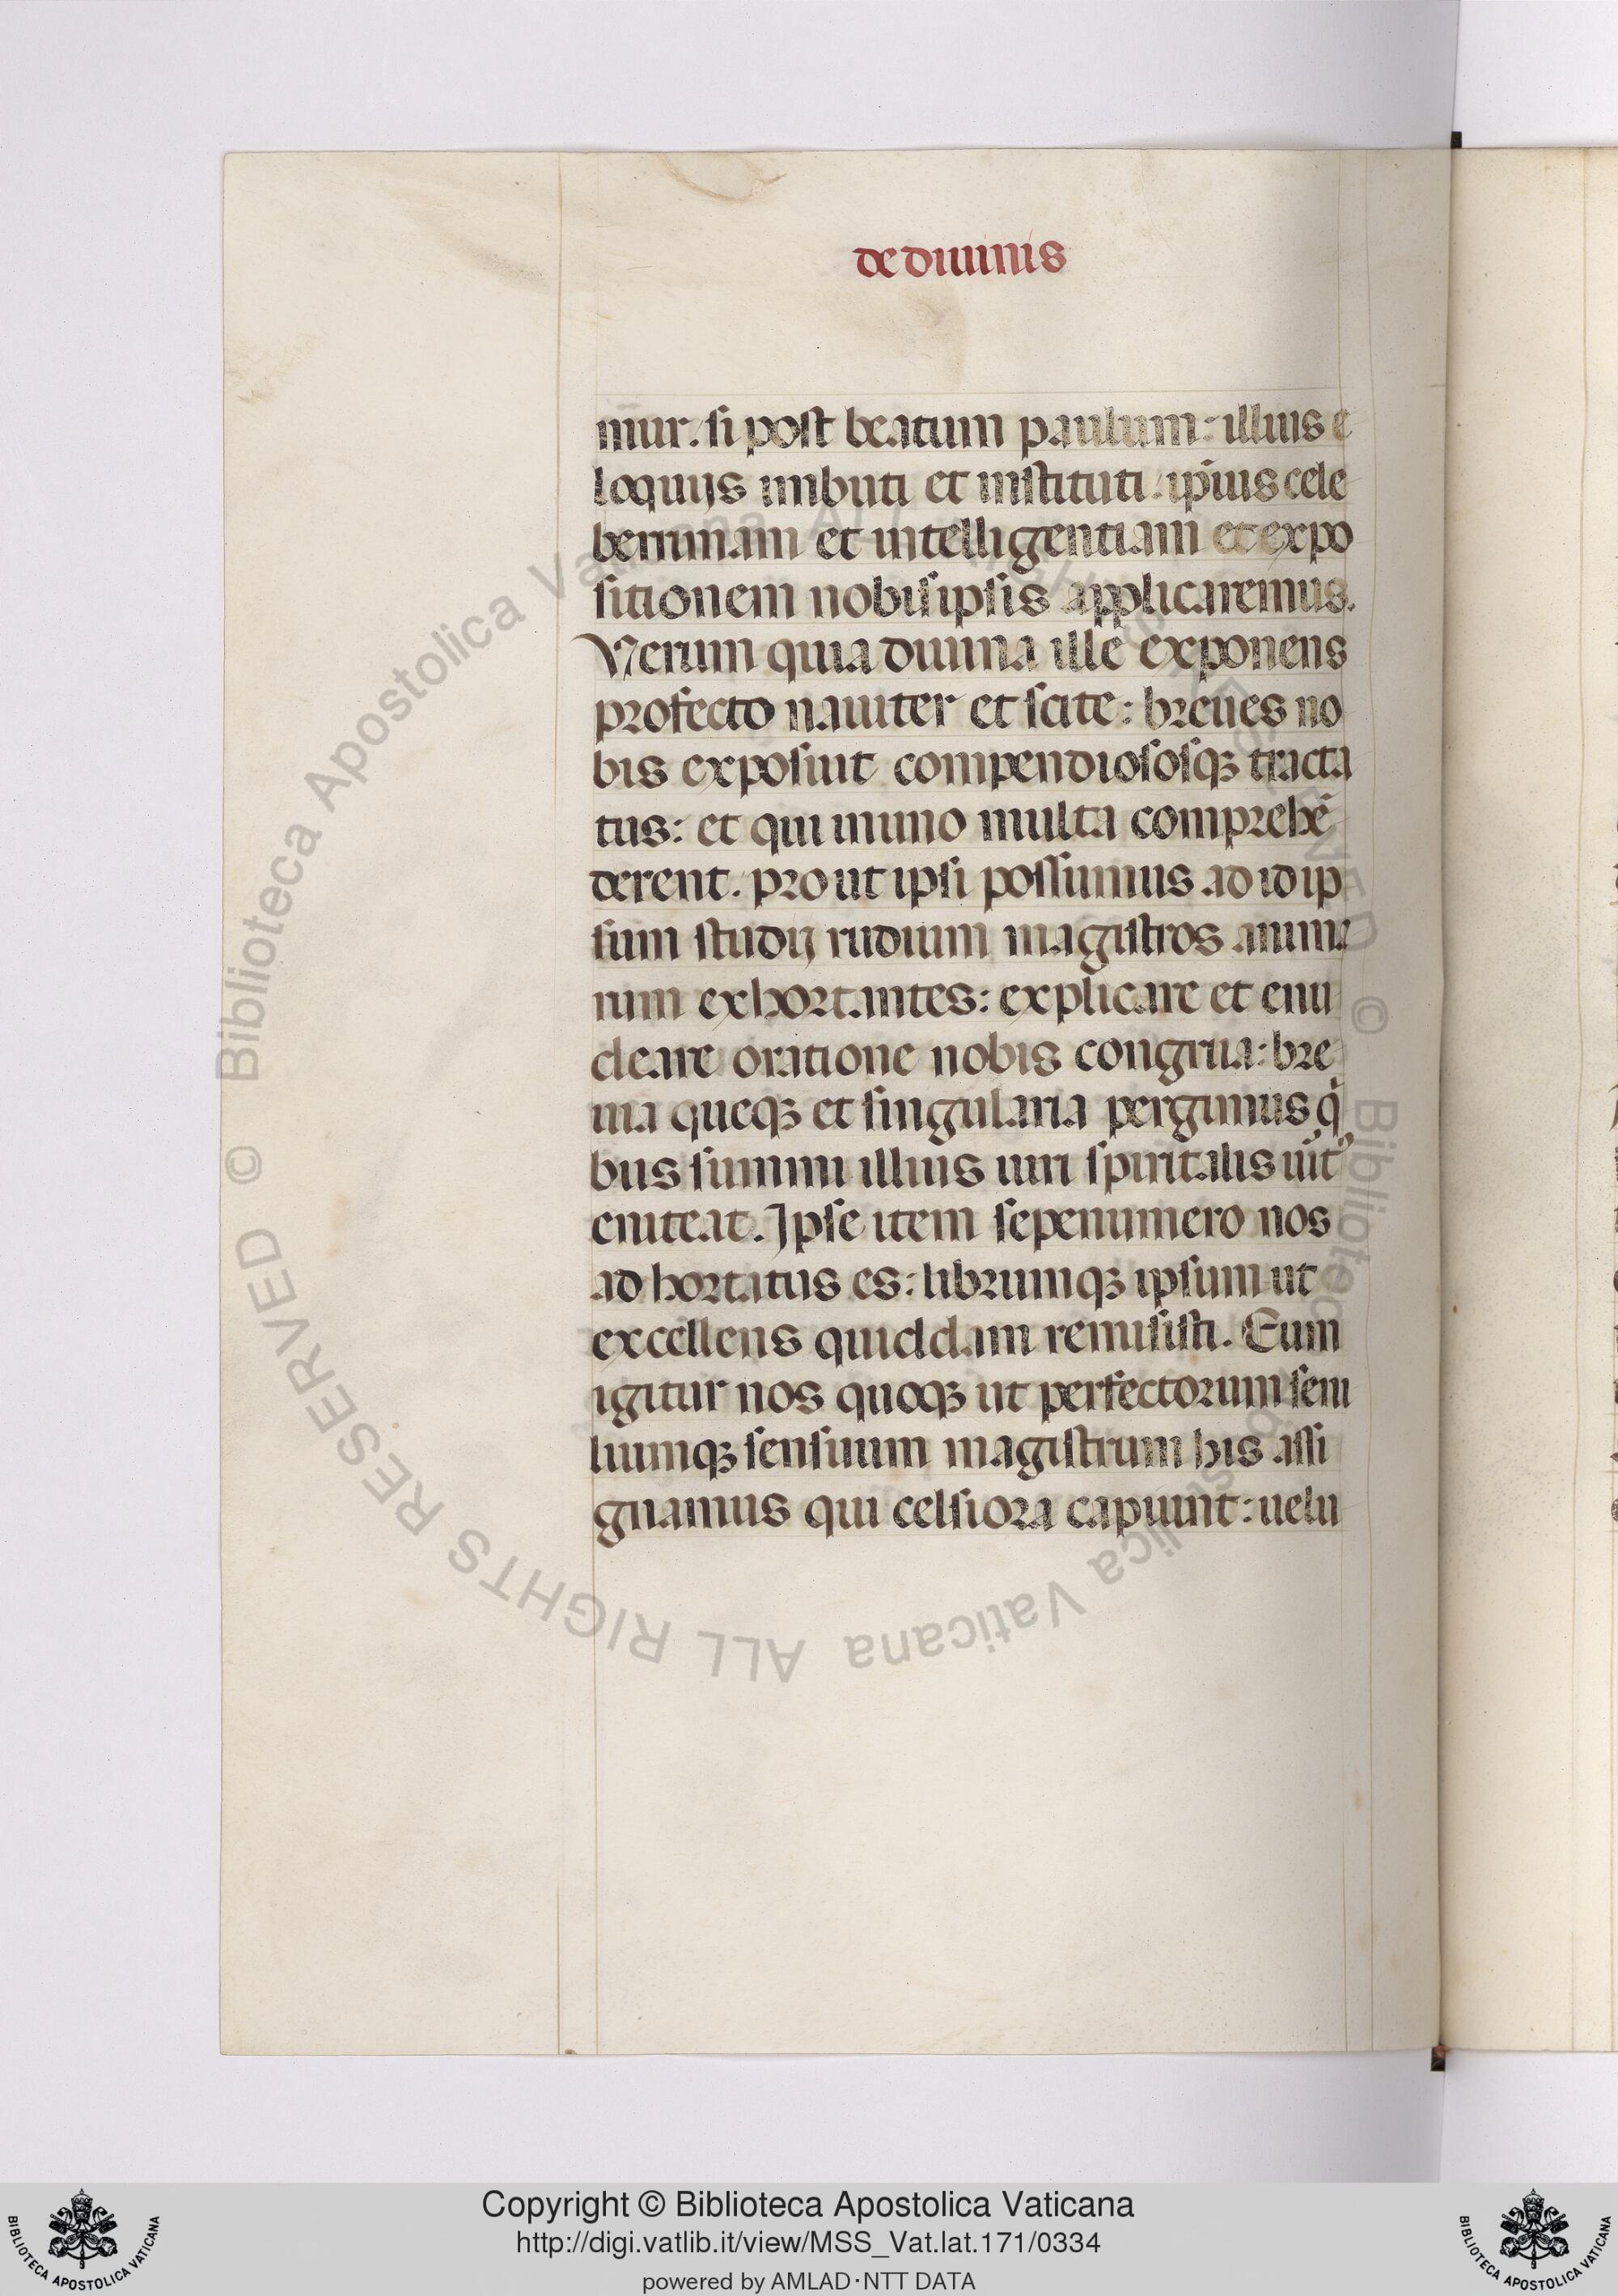 de diuinis
mur. si post beatum paulum: illius e
loquijs imbuti et instituti. ip̄ius cele
berrimam et intelligentiam et expo
sitionem nobisipsis applicaremus.
Verum quia diuina ille exponens
profecto nauiter et scite: breues no
bis exposuit compendiososqꝫ tracta
tus: et qui in uno multa comprehē
derent. pro ut ipsi possumus ad id ip
sum studij rudium magistros anima
rum exhortantes: explicare et enu
cleare oratione nobis congrua: bre
uia queqꝫ et singularia pergimus q̇
bus summi illius uiri spiritalis
eniteat. Ipse item sepenumero nos
ad hortatus es: librumqꝫ ipsum ut
excellens quiddam remisisti. Eum
igitur nos quoqꝫ ut perfectorum seni
liumqꝫ sensuum magistrum his assi
gnamus qui celsiora capiunt: uelu
© Biblioteca Apostolica Vaticana ALL RIGHTS RESERVED
Copyright © Biblioteca Apostolica Vaticana
http://digi.vatlib.it/view/MSS_Vat.lat.171/0334
powered by AMLAD·NTT DATA
BIBLIOTECA APOSTOLICA VATICANA
BIBLIOTECA APOSTOLICA VATICANA